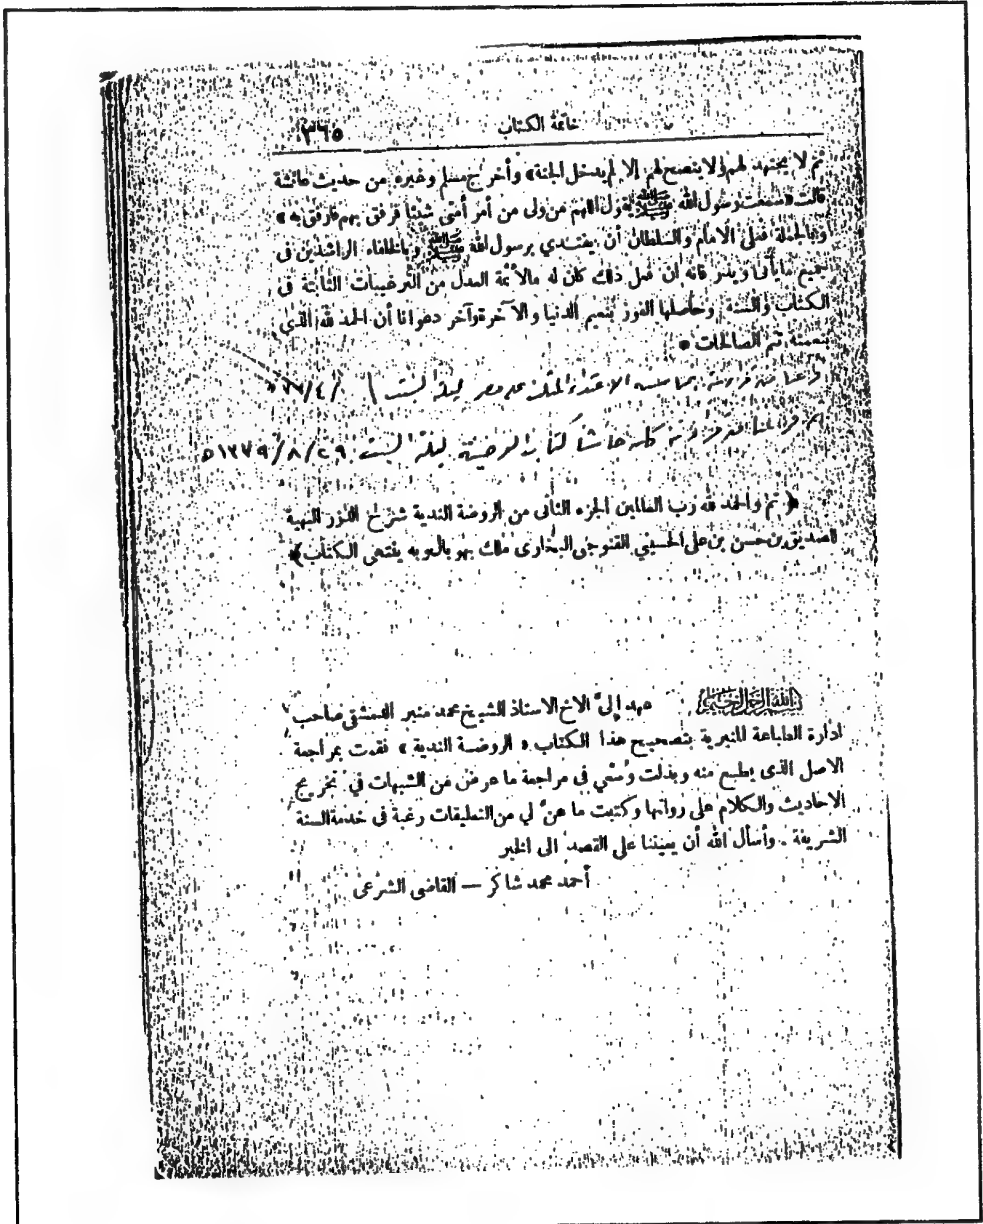 خاتمة الكتاب ٣٦٥
ثم لا يجتهد لهم ولا ينصح لهم إلا لم يدخل الجنة» وأخرج مسلم وغيره من حديث عائشة
قالت «سمعت رسول الله ﷺ يقول اللهم من ولى من أمر أمتي شيئا فرفق بهم فارفق به»
وبالجملة فعلى الامام والسلطان أن يقتدي برسول الله ﷺ وبالخلفاء الراشدين فى
جميع ما يأتى ويذر فانه ان فعل ذلك كان له مالأئمة العدل من الترغيبات الثابتة فى
الكتاب والسنة وحاصلها الفوز بنعيم الدنيا والآخرة وآخر دعوانا أن الحمد لله الذي
بنعمته تتم الصالحات *
ليلة السبت /٤/
كتاب ليلة السبت ٢٩/٨/١٣٧٩ه
﴿ تم والحمد لله رب العالمين الجزء الثانى من الروضة الندية شرح الدرر البهية
للصديق بن حسن بن على الحسيني القنوجى البخارى ملك بهوبال وبه ينتهى الكتاب﴾
بسم الله الرحمن الرحيم عهد إلىّ الاخ الاستاذ الشيخ محمد منير الدمشقى صاحب
ادارة الطباعة المنيرية بتصحيح هذا الكتاب «الروضة الندية» فقمت بمراجعة
الاصل الذى يطبع منه وبذلت وسعي فى مراجعة ما عرض من الشبهات في تخريج
الاحاديث والكلام على رواتها وكتبت ما عنّ لي من التعليقات رغبة فى خدمة السنة
الشريفة . وأسأل الله أن يعيننا على القصد الى الخير
أحمد محمد شاكر — القاضى الشرعى